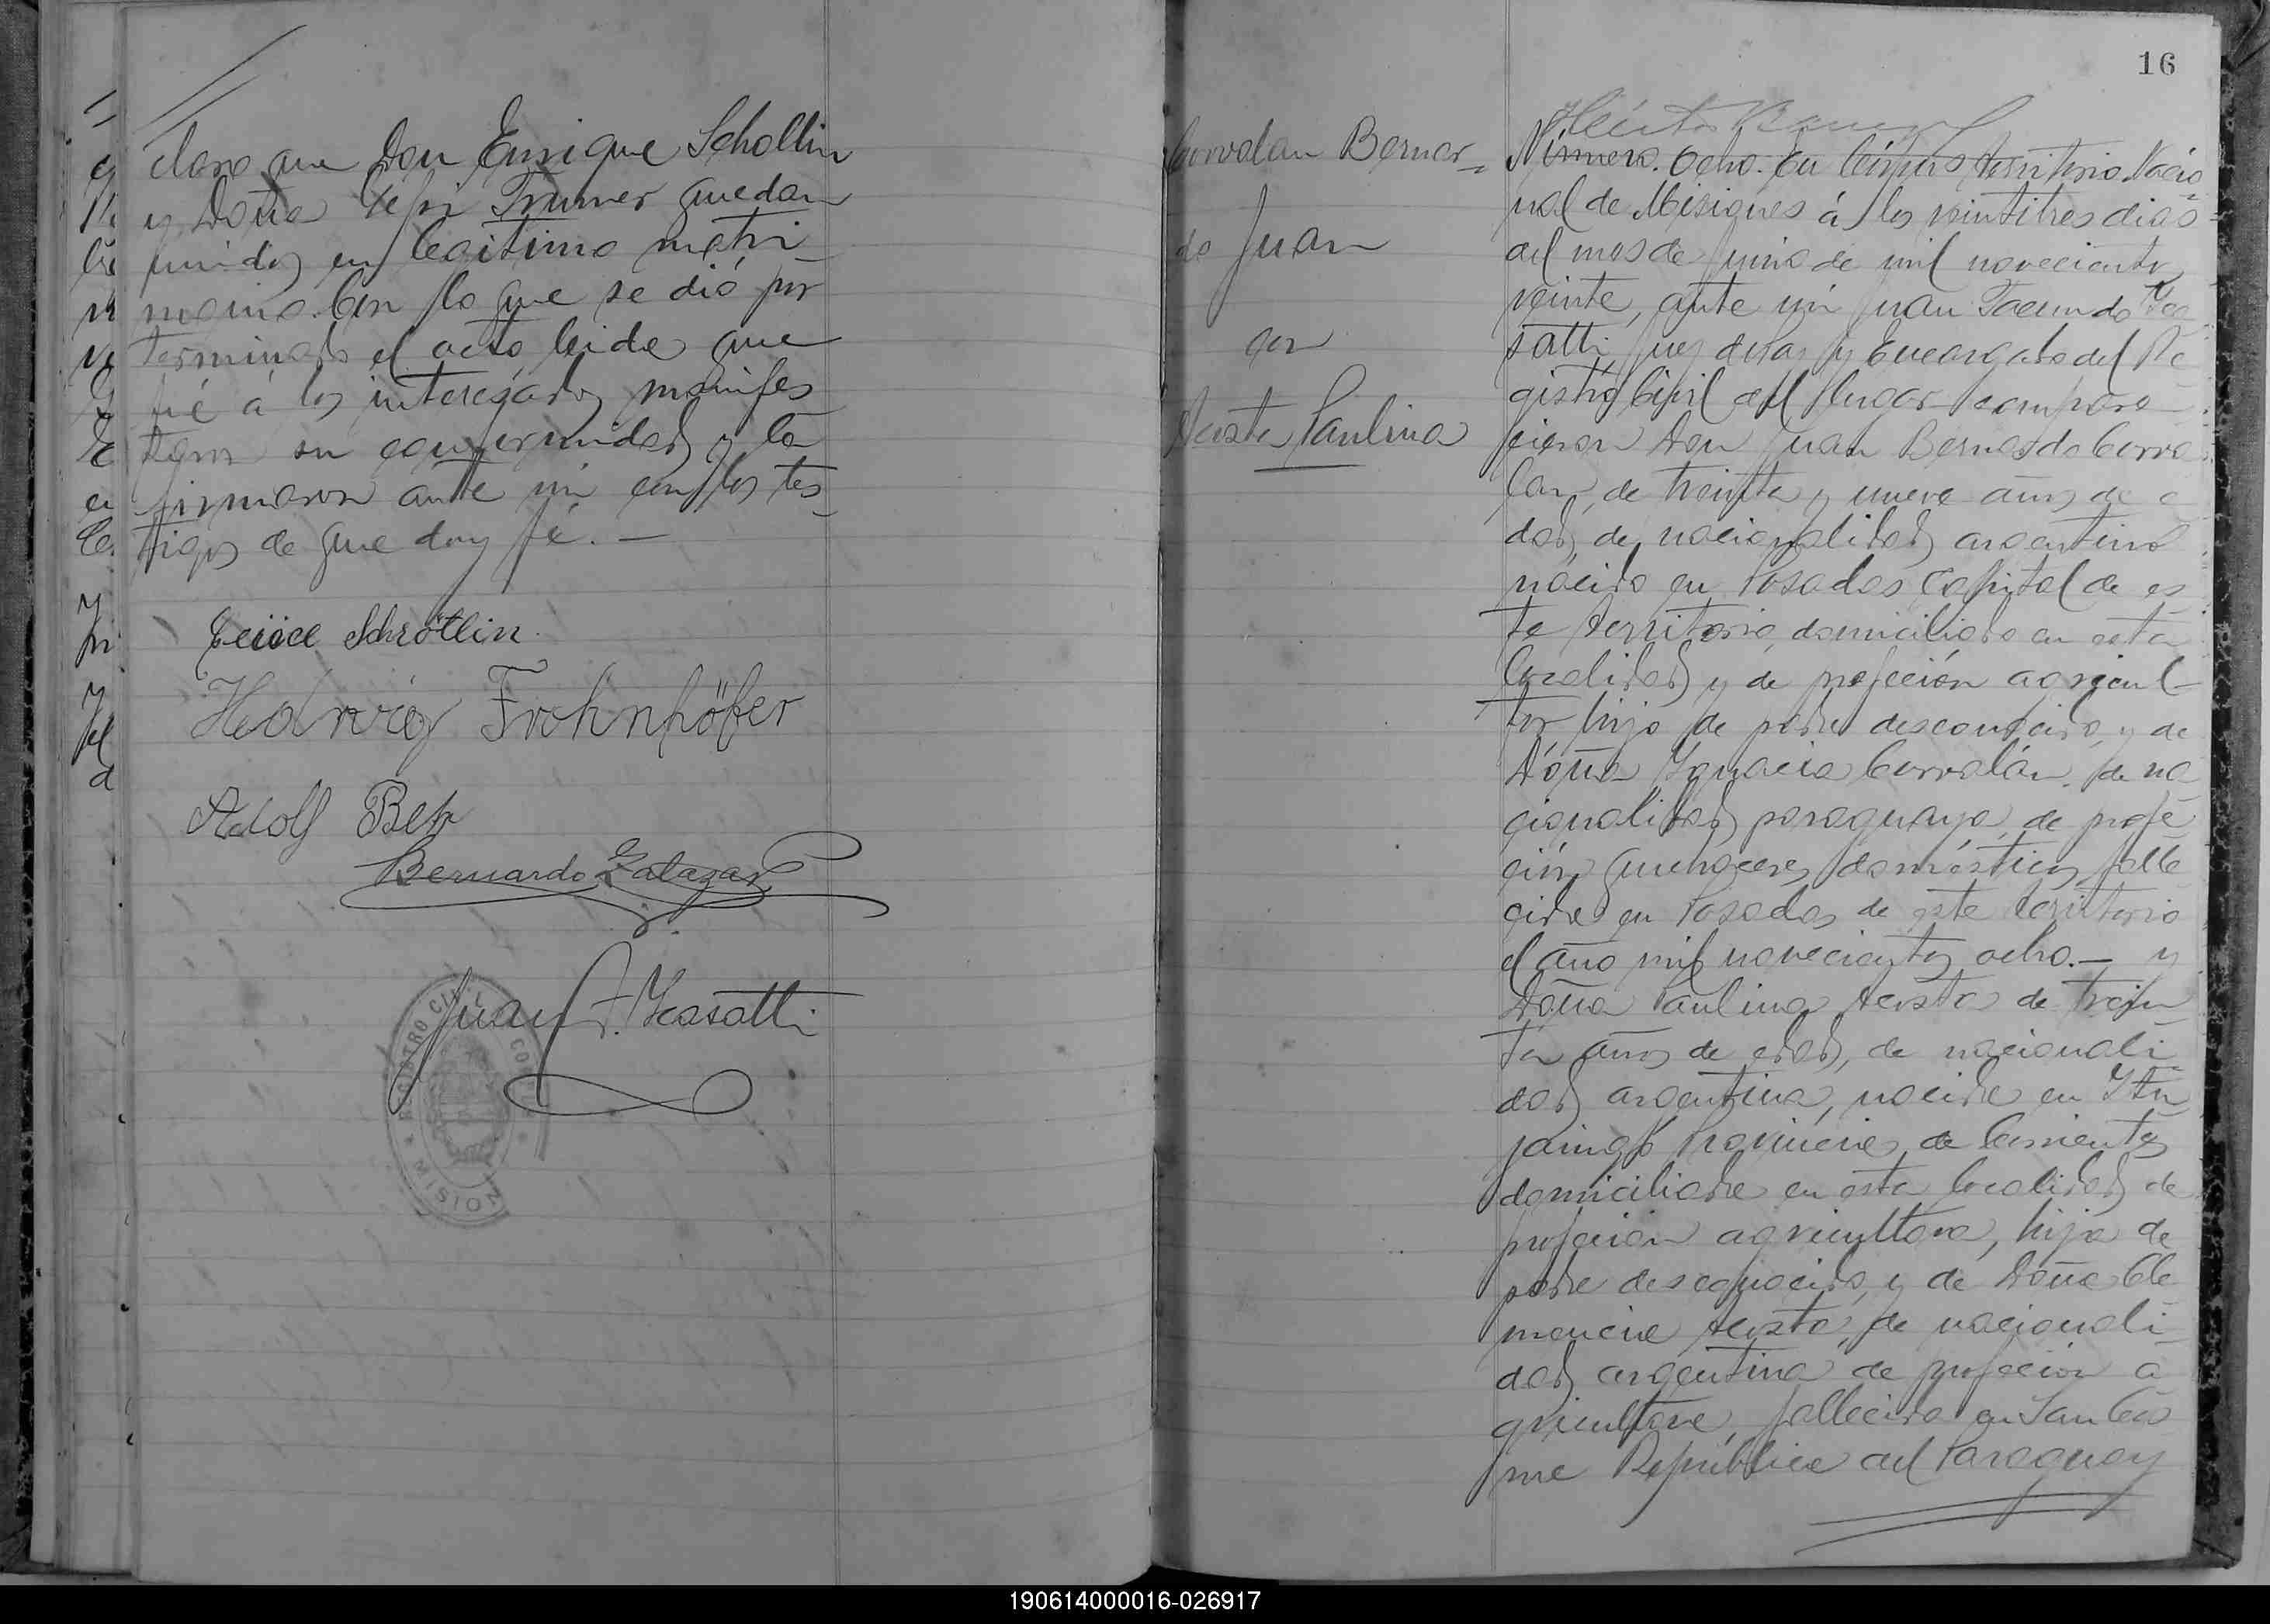 claro que Don Enrique Schollin
y Doña Trumer quedan
unidos en legitimo matri
monio. Con lo que se dió por
terminado el acto leida que
fué á los interesados manifes
taron su conformidad y la
firmaron ante mi con los tes
tigos de que doy fé. —
Schröllin
Hedwig Frohnhöfer
Adolf Beh
Bernardo Zalazar
Juan F. Kasatti
REGISTRO CIVIL
MISION
16
Corvalan Bernar-
do Juan
con
Acosta Paulina
Número Ocho. En Córpus territorio Nacio
nal de Misiones á los veintitres dias
del mes de Junio de mil novecientos
veinte, ante mi Juan Facundo Ka
satti Juez de Paz y Encargado del Re
gistro Civil del lugar compare
cieron Don Juan Bernardo Corva
lan, de treinta y nueve años de e
dad, de nacionalidad argentino
nacido en Posadas Capital de es
te territorio, domiciliado en esta
localidad y de profeción agricul
tor hijo de padre desconocido, y de
Doña Ygnacia Corvalán, de na
cionalidad paraguaya, de profe
ción quehaceres domésticos falle
cida en Posadas de este territorio
el año mil novecientos ocho. — y
Doña Paulina Acosta de trein
ta años de edad, de nacionali
dad argentina, nacida en Itu
zaingó Provincia de Corrientes
domiciliada en esta localidad de
profecion agricultora, hija de
padre desconocido, y de Doña Cle
mencia Acosta, de nacionali
dad argentina de profecion a
gricultora, fallecida en San Cos
me República del Paraguay
190614000016-026917